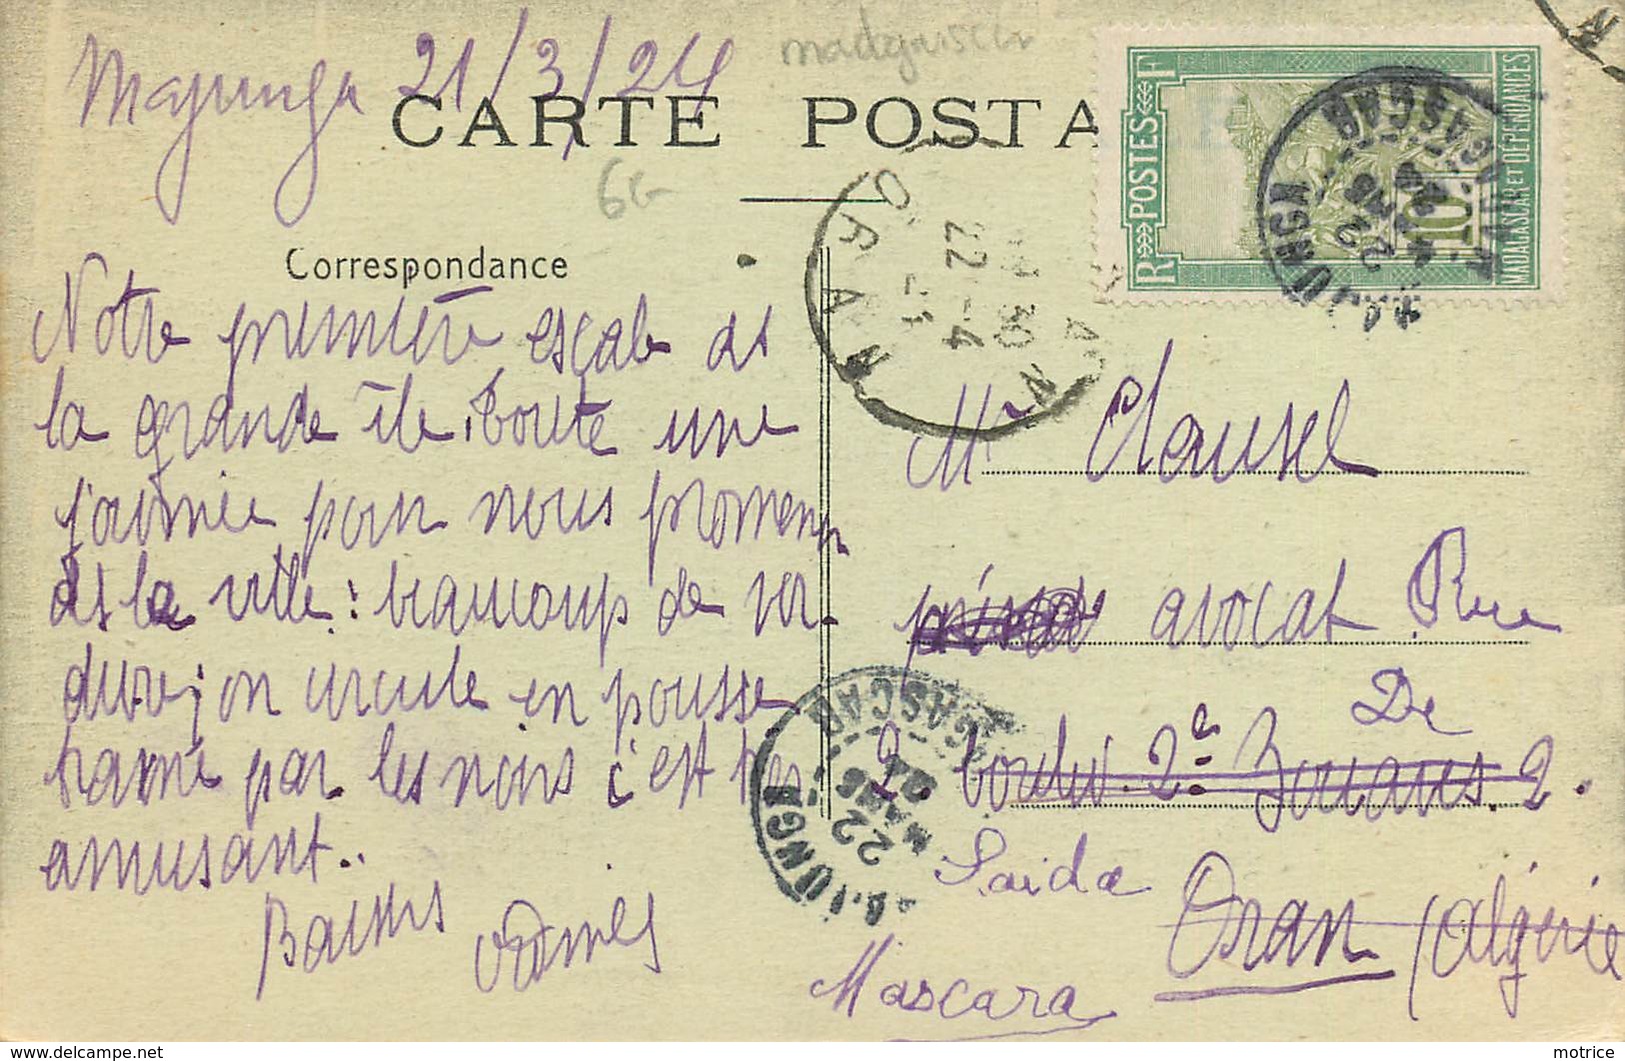 Majunga 21/3/24
madagascar
CARTE POSTA
6G
Correspondance
Notre première escale ds
la grande île, toute une
journée pour nous promener
ds la ville : beaucoup de ver-
dure ; on circule en pousse
trainé par les noirs c'est très
amusant..
Baisers
RF POSTES
10
MADAGASCAR ET DÉPENDANCES
MAJUNGA
MADAGASCAR
22 MARS 24
ORAN
22 -4
Mr Clausel
avocat Rue
De
2e Zouaves. 2.
Saida
Oran (Algérie
Mascara
MAJUNGA
MADAGASCAR
22 MARS 24
delcampe.net
motrice